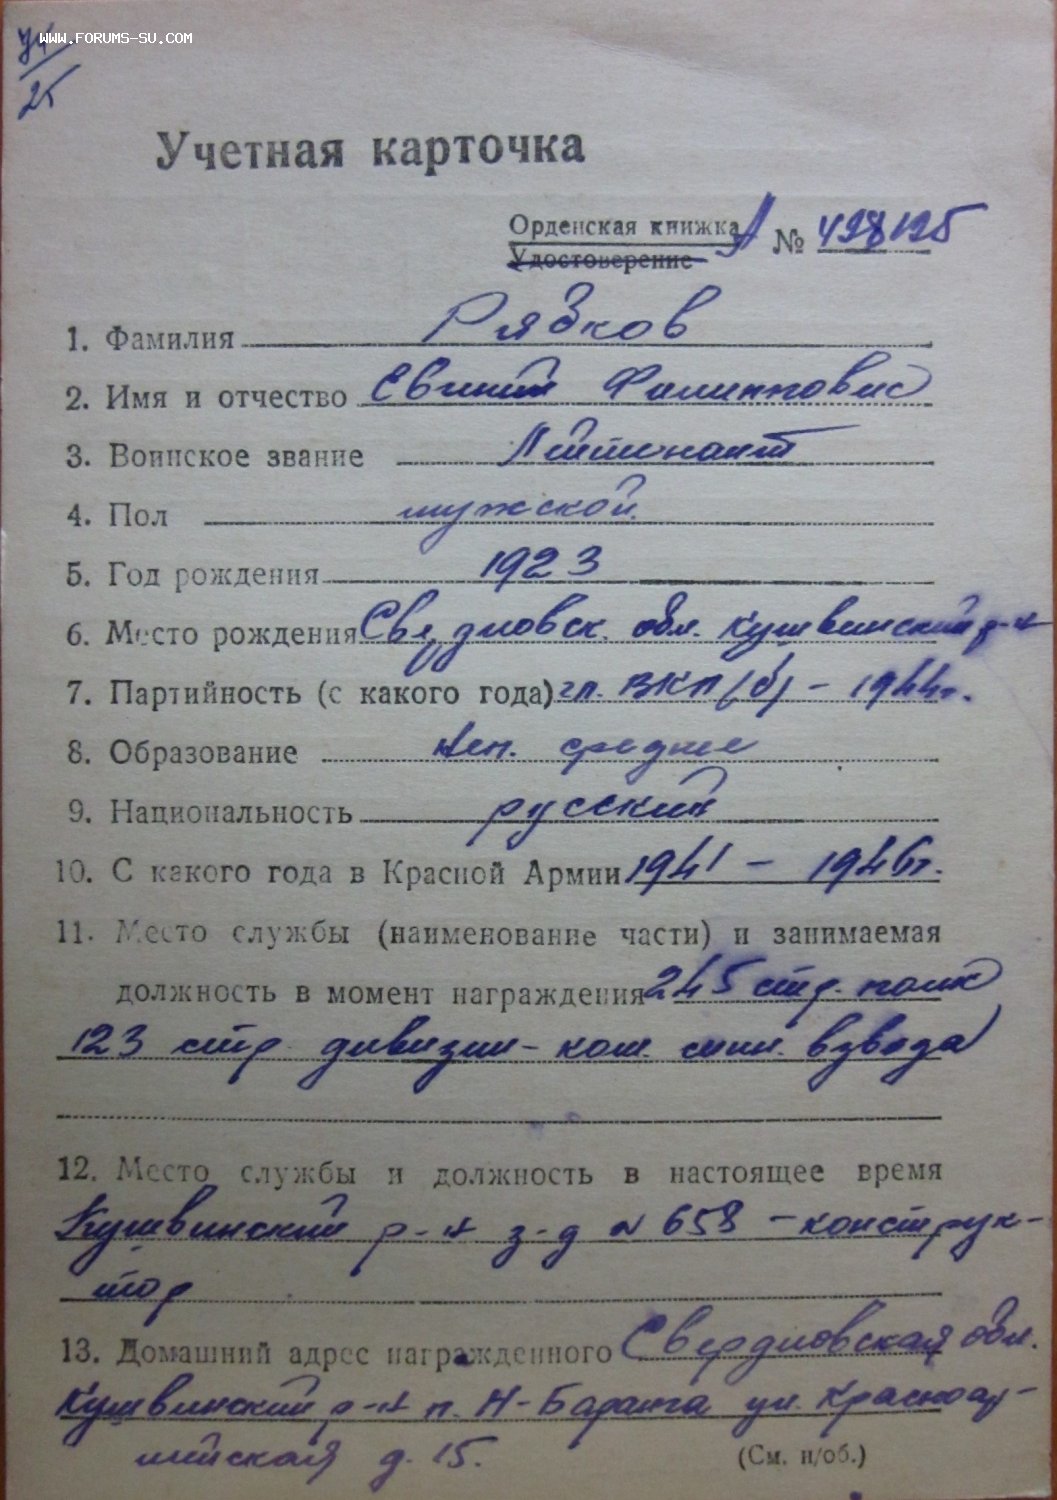 www.forums-su.com
25
Учетная карточка
Орденская книжка А № 498195
Удостоверение
1. Фамилия Рябков
2. Имя и отчество Евгений Филиппович
3. Воинское звание Лейтенант
4. Пол мужской
5. Год рождения 1923
6. Место рождения Свердловск. обл. Кушвинский р-н
7. Партийность (с какого года) чл. ВКП(б) – 1944г.
8. Образование неп. среднее
9. Национальность русский
10. С какого года в Красной Армии 1941 – 1946г.
11. Место службы (наименование части) и занимаемая
должность в момент награждения 245 стр. полк
123 стр. дивизии – ком. взвода
12. Место службы и должность в настоящее время
Кушвинский р-н з-д № 658 – конструк-
тор
13. Домашний адрес награжденного Свердловская обл.
Кушвинский р-н п. Н-Баранча ул. Красноар-
мейская д. 15.
(См. н/об.)